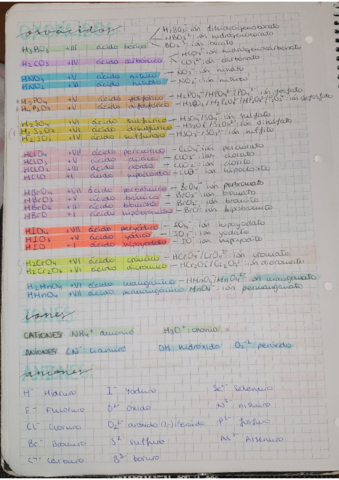 oxoácidos
H₃BO₃ +III ácido bórico
H₂BO₃⁻ ión dihidrogenoborato
HBO₃²⁻ ión hidrogenoborato
BO₃³⁻ ión borato
H₂CO₃ +IV ácido carbónico
HCO₃⁻ ión hidrogenocarbonato
CO₃²⁻ ión carbonato
HNO₃ +V ácido nítrico NO₃⁻ ión nitrato
HNO₂ +III ácido nitroso NO₂⁻ ión nitrito
H₃PO₄ +V ácido fosfórico H₂PO₄⁻/HPO₄²⁻/PO₄³⁻ ión fosfato
ácido
H₂SO₄ +VI ácido sulfúrico HSO₄⁻/SO₄²⁻ ión sulfato
H₂S₂O₇ +VI ácido disulfúrico
H₂SO₃ +IV ácido sulfuroso HSO₃⁻/SO₃²⁻ ión sulfito
HClO₄ +VII ácido perclórico ClO₄⁻ ión perclorato
HClO₃ +V ácido clórico ClO₃⁻ ión clorato
HClO₂ +III ácido cloroso ClO₂⁻ ión clorito
HClO +I ácido hipocloroso ClO⁻ ión hipoclorito
HBrO₄ +VII ácido perbrómico BrO₄⁻ ión perbromato
HBrO₃ +V ácido brómico BrO₃⁻ ión bromato
HBrO₂ +III ácido bromoso BrO₂⁻ ión bromito
HBrO +I ácido hipobromoso BrO⁻ ión hipobromito
HIO₄ +VII ácido peryódico IO₄⁻ ión peryodato
HIO₃ +V ácido yódico IO₃⁻ ión yodato
HIO +I ácido hipoyodoso IO⁻ ión hipoyodito
H₂CrO₄ +VI ácido crómico HCrO₄⁻/CrO₄²⁻ ión cromato
H₂Cr₂O₇ +VI ácido dicrómico HCr₂O₇⁻/Cr₂O₇²⁻ ión dicromato
H₂MnO₄ +VI ácido mangánico HMnO₄⁻/MnO₄²⁻ ión manganato
HMnO₄ +VII ácido permangánico MnO₄⁻ ión permanganato
iones
CATIONES NH₄⁺ amonio H₃O⁺ oxonio
ANIONES CN⁻ cianuro OH⁻ hidróxido O₂²⁻ peróxido
aniones
H⁻ Hidruro I⁻ Yoduro Se²⁻ Seleniuro
F⁻ Fluoruro O²⁻ Óxido N³⁻ Nitruro
Cl⁻ Cloruro P³⁻ fosfuro
Br⁻ Bromuro S²⁻ sulfuro As³⁻ Arseniuro
C⁴⁻ carburo